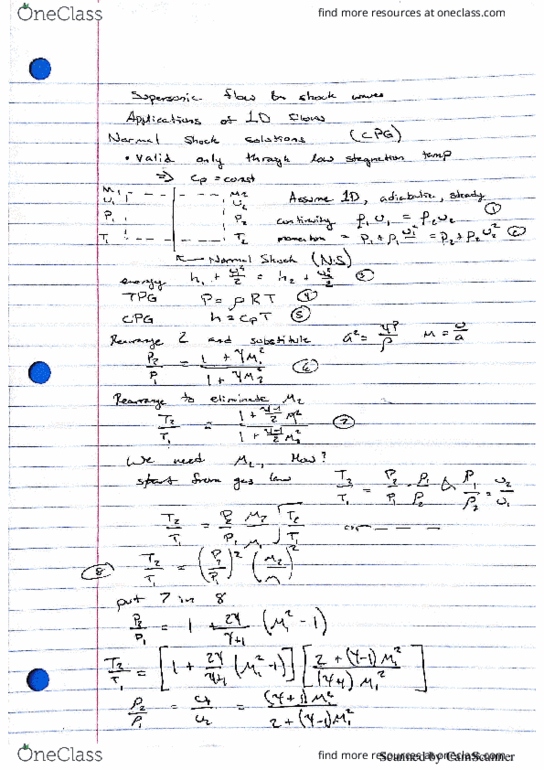 OneClass
find more resources at oneclass.com
Supersonic flow & shock waves
Applications of 1D flows
Normal Shock solutions (CPG)
• valid only through low stagnation temp
⇒ Cp = const
M₁ M₂
u₁ u₂
P₁ P₂
T₁ T₂
Assume 1D, adiabatic, steady
continuity ρ₁u₁ = ρ₂u₂ ①
momentum = P₁ + ρ₁u₁² = P₂ + ρ₂u₂² ②
← Normal Shock (N.S)
energy h₁ + u₁²/2 = h₂ + u₂²/2 ③
TPG P = ρRT ④
CPG h = CpT ⑤
Rearrange 2 and substitute a² = γP/ρ M = u/a
P₂/P₁ = (1 + γM₁²)/(1 + γM₂²) ⑥
Rearrange to eliminate M₂
T₂/T₁ = (1 + (γ-1)/2 M₁²)/(1 + (γ-1)/2 M₂²) ⑦
We need M₂, How?
start from gas law T₂/T₁ = P₂/P₁ · ρ₁/ρ₂ & ρ₁/ρ₂ = u₂/u₁
T₂/T₁ = P₂/P₁ M₂/M₁ √(T₂/T₁)
⑧ T₂/T₁ = (P₂/P₁)² (M₂/M₁)²
put 7 in 8
P₂/P₁ = 1 + 2γ/(γ+1) (M₁² - 1)
T₂/T₁ = [1 + 2γ/(γ+1) (M₁² - 1)] [(2 + (γ-1)M₁²)/((γ+1)M₁²)]
ρ₂/ρ₁ = u₁/u₂ = (γ+1)M₁²/(2 + (γ-1)M₁²)
OneClass
find more resources at oneclass.com
Scanned by CamScanner